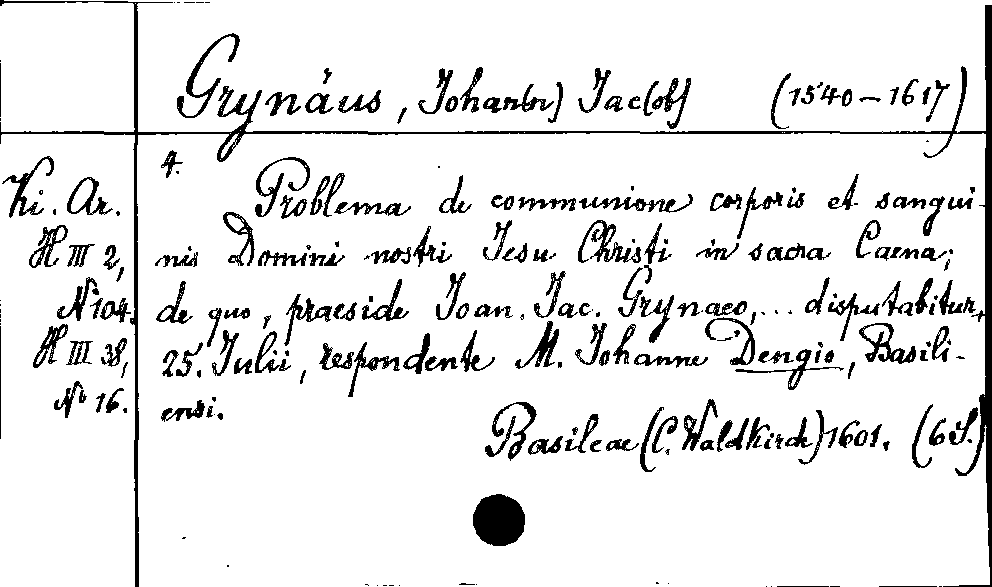 Grynäus, Johan(n) Jac(ob) (1540–1617)
4.
Ki. Ar.
H III 2,
No 104.
H III 38,
No 16.
Problema de communione corporis et sangui-
nis Domini nostri Jesu Christi in sacra Caena;
de quo, praeside Joan. Jac. Grynaeo,... disputabitur,
25. Julii, respondente M. Johanne Dengio, Basili-
ensi.
Basileae (C. Waldkirch) 1601. (6 S.)